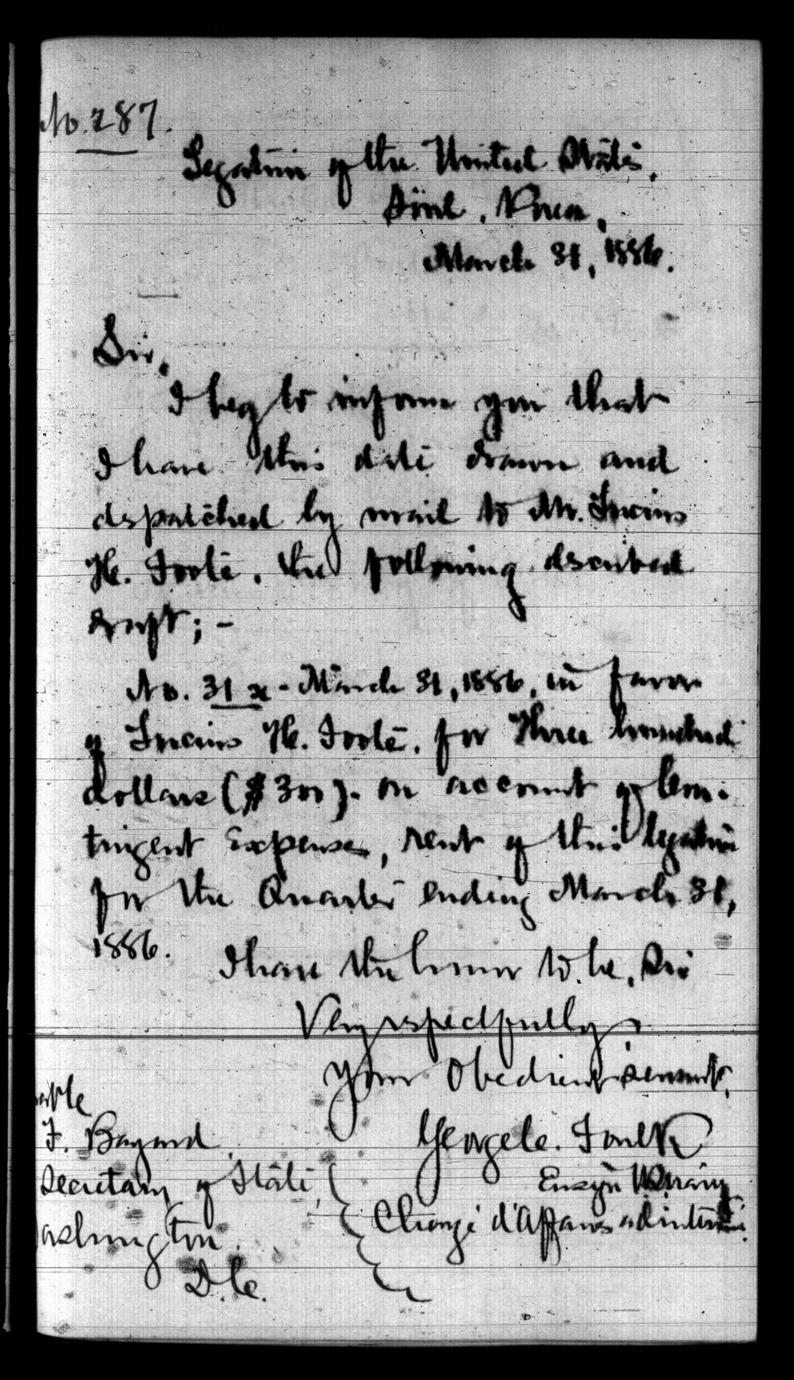 No. 287.
Legation of the United States,
Söul, Korea,
March 31, 1886.
Sir,
I beg to inform you that
I have this date drawn and
dispatched by mail to Mr. Lucius
H. Foote, the following described
draft; -
No. 31 x - March 31, 1886, in favor
of Lucius H. Foote, for Three hundred
dollars ($300). on account of Con-
tingent Expenses, rent of this legation
for the Quarter ending March 31,
1886.
I have the honor to be, Sir
Very respectfully,
Your Obedient servant,
able
F. Bayard
Secretary of State,
ashington
D.C.
George C. Foulk
Ensign U.S. Navy
Chargé d'Affaires ad interim.